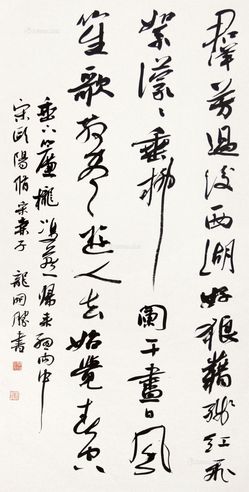 群芳過後西湖好狼藉殘紅飛
絮濛々垂柳闌干盡日風
笙歌散盡遊人去始覺春空
垂下簾櫳雙燕歸來細雨中
宋歐陽脩采桑子 龍開勝書